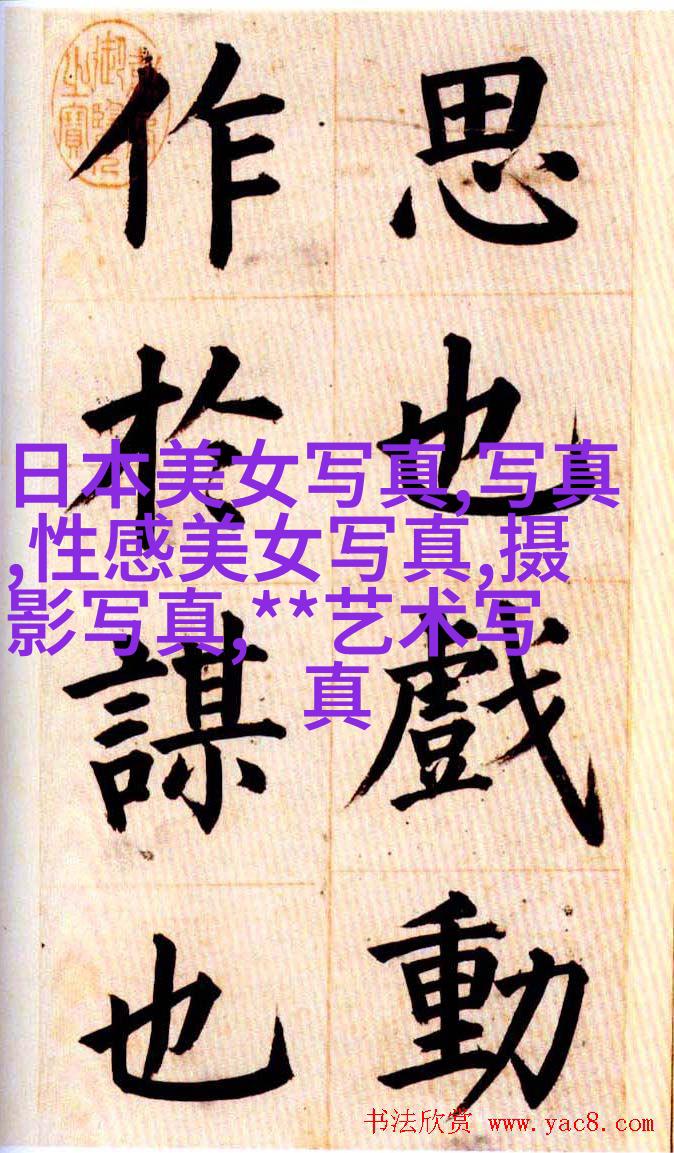 思也戲動
作於謀也
日本美女写真,写真
,性感美女写真,摄
影写真,**艺术写
真
书法欣赏 www.yac8.com